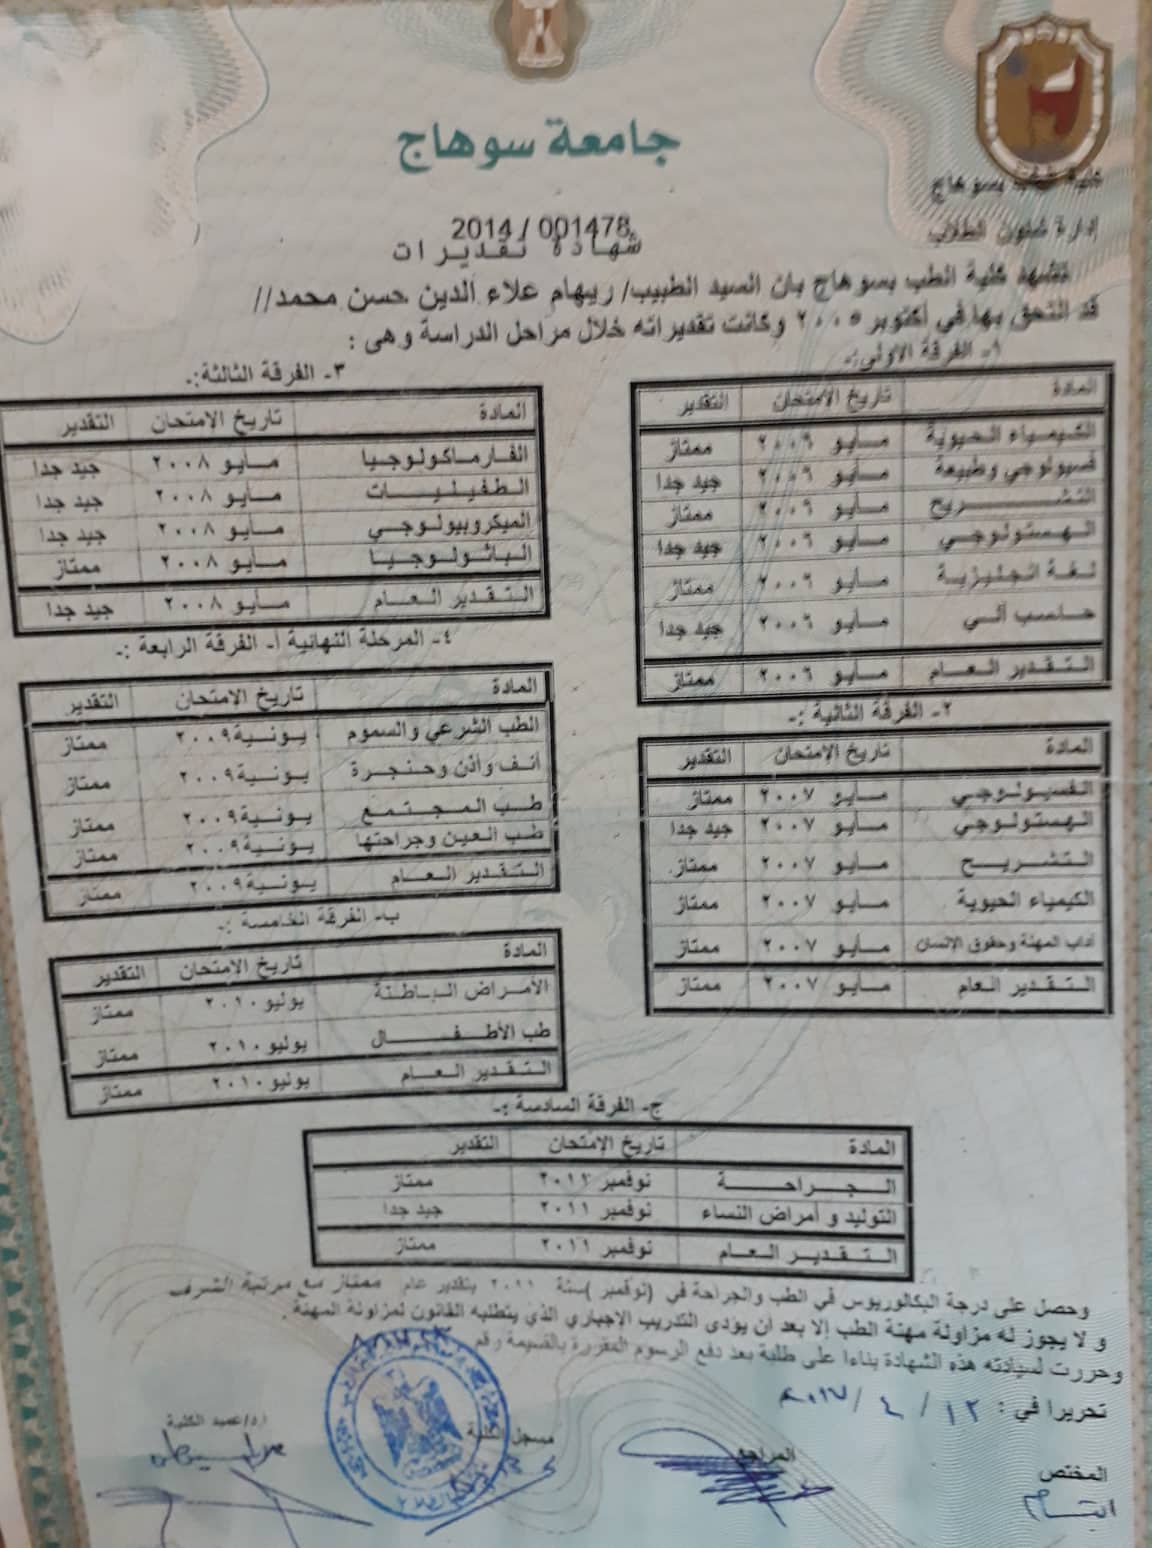 جامعة سوهاج
كلية الطب بسوهاج
إدارة شئون الطلاب
2014 / 001478
شهادة تقديرات
تشهد كلية الطب بسوهاج بان السيد الطبيب/ ريهام علاء الدين حسن محمد//
قد التحق بها في أكتوبر ٢٠٠٥ وكانت تقديراته خلال مراحل الدراسة وهى :
١- الفرقة الاولى:-
المادة تاريخ الامتحان التقدير
الكيمياء الحيوية مايو ٢٠٠٦ ممتاز
فسيولوجي وطبيعة مايو ٢٠٠٦ جيد جدا
التشريح مايو ٢٠٠٦ ممتاز
الهستولوجي مايو ٢٠٠٦ جيد جدا
لغة انجليزية مايو ٢٠٠٦ ممتاز
حاسب آلي مايو ٢٠٠٦ جيد جدا
التقدير العام مايو ٢٠٠٦ ممتاز
٢- الفرقة الثانية :-
المادة تاريخ الامتحان التقدير
الفسيولوجي مايو ٢٠٠٧ ممتاز
الهستولوجي مايو ٢٠٠٧ جيد جدا
التشريح مايو ٢٠٠٧ ممتاز
الكيمياء الحيوية مايو ٢٠٠٧ ممتاز
آداب المهنة وحقوق الإنسان مايو ٢٠٠٧ ممتاز
التقدير العام مايو ٢٠٠٧ ممتاز
٣- الفرقة الثالثة:-
المادة تاريخ الامتحان التقدير
الفارماكولوجيا مايو ٢٠٠٨ جيد جدا
الطفيليات مايو ٢٠٠٨ جيد جدا
الميكروبيولوجي مايو ٢٠٠٨ جيد جدا
الباثولوجيا مايو ٢٠٠٨ ممتاز
التقدير العام مايو ٢٠٠٨ جيد جدا
٤- المرحلة النهائية أ- الفرقة الرابعة :-
المادة تاريخ الامتحان التقدير
الطب الشرعي والسموم يونية٢٠٠٩ ممتاز
أنف وأذن وحنجرة يونية٢٠٠٩ ممتاز
طب المجتمع يونية٢٠٠٩ ممتاز
طب العين وجراحتها يونية٢٠٠٩ ممتاز
التقدير العام يونية٢٠٠٩ ممتاز
ب- الفرقة الخامسة :-
المادة تاريخ الامتحان التقدير
الأمراض الباطنة يوليو ٢٠١٠ ممتاز
طب الأطفال يوليو ٢٠١٠ ممتاز
التقدير العام يوليو ٢٠١٠ ممتاز
ج- الفرقة السادسة :-
المادة تاريخ الامتحان التقدير
الجراحة نوفمبر ٢٠١١ ممتاز
التوليد و أمراض النساء نوفمبر ٢٠١١ جيد جدا
التقدير العام نوفمبر ٢٠١١ ممتاز
وحصل على درجة البكالوريوس في الطب والجراحة في (نوفمبر )سنة ٢٠١١ بتقدير عام ممتاز مع مرتبة الشرف
و لا يجوز له مزاولة مهنة الطب إلا بعد أن يؤدى التدريب الإجباري الذي يتطلبه القانون لمزاولة المهنة .
وحررت لسيادته هذه الشهادة بناءا على طلبة بعد دفع الرسوم المقررة بالقسيمة رقم
تحريرا في : ١٢ / ٤ / ٢٠١٧
المختص المراجع مسجل الكلية أ.د/عميد الكلية
ابتسام